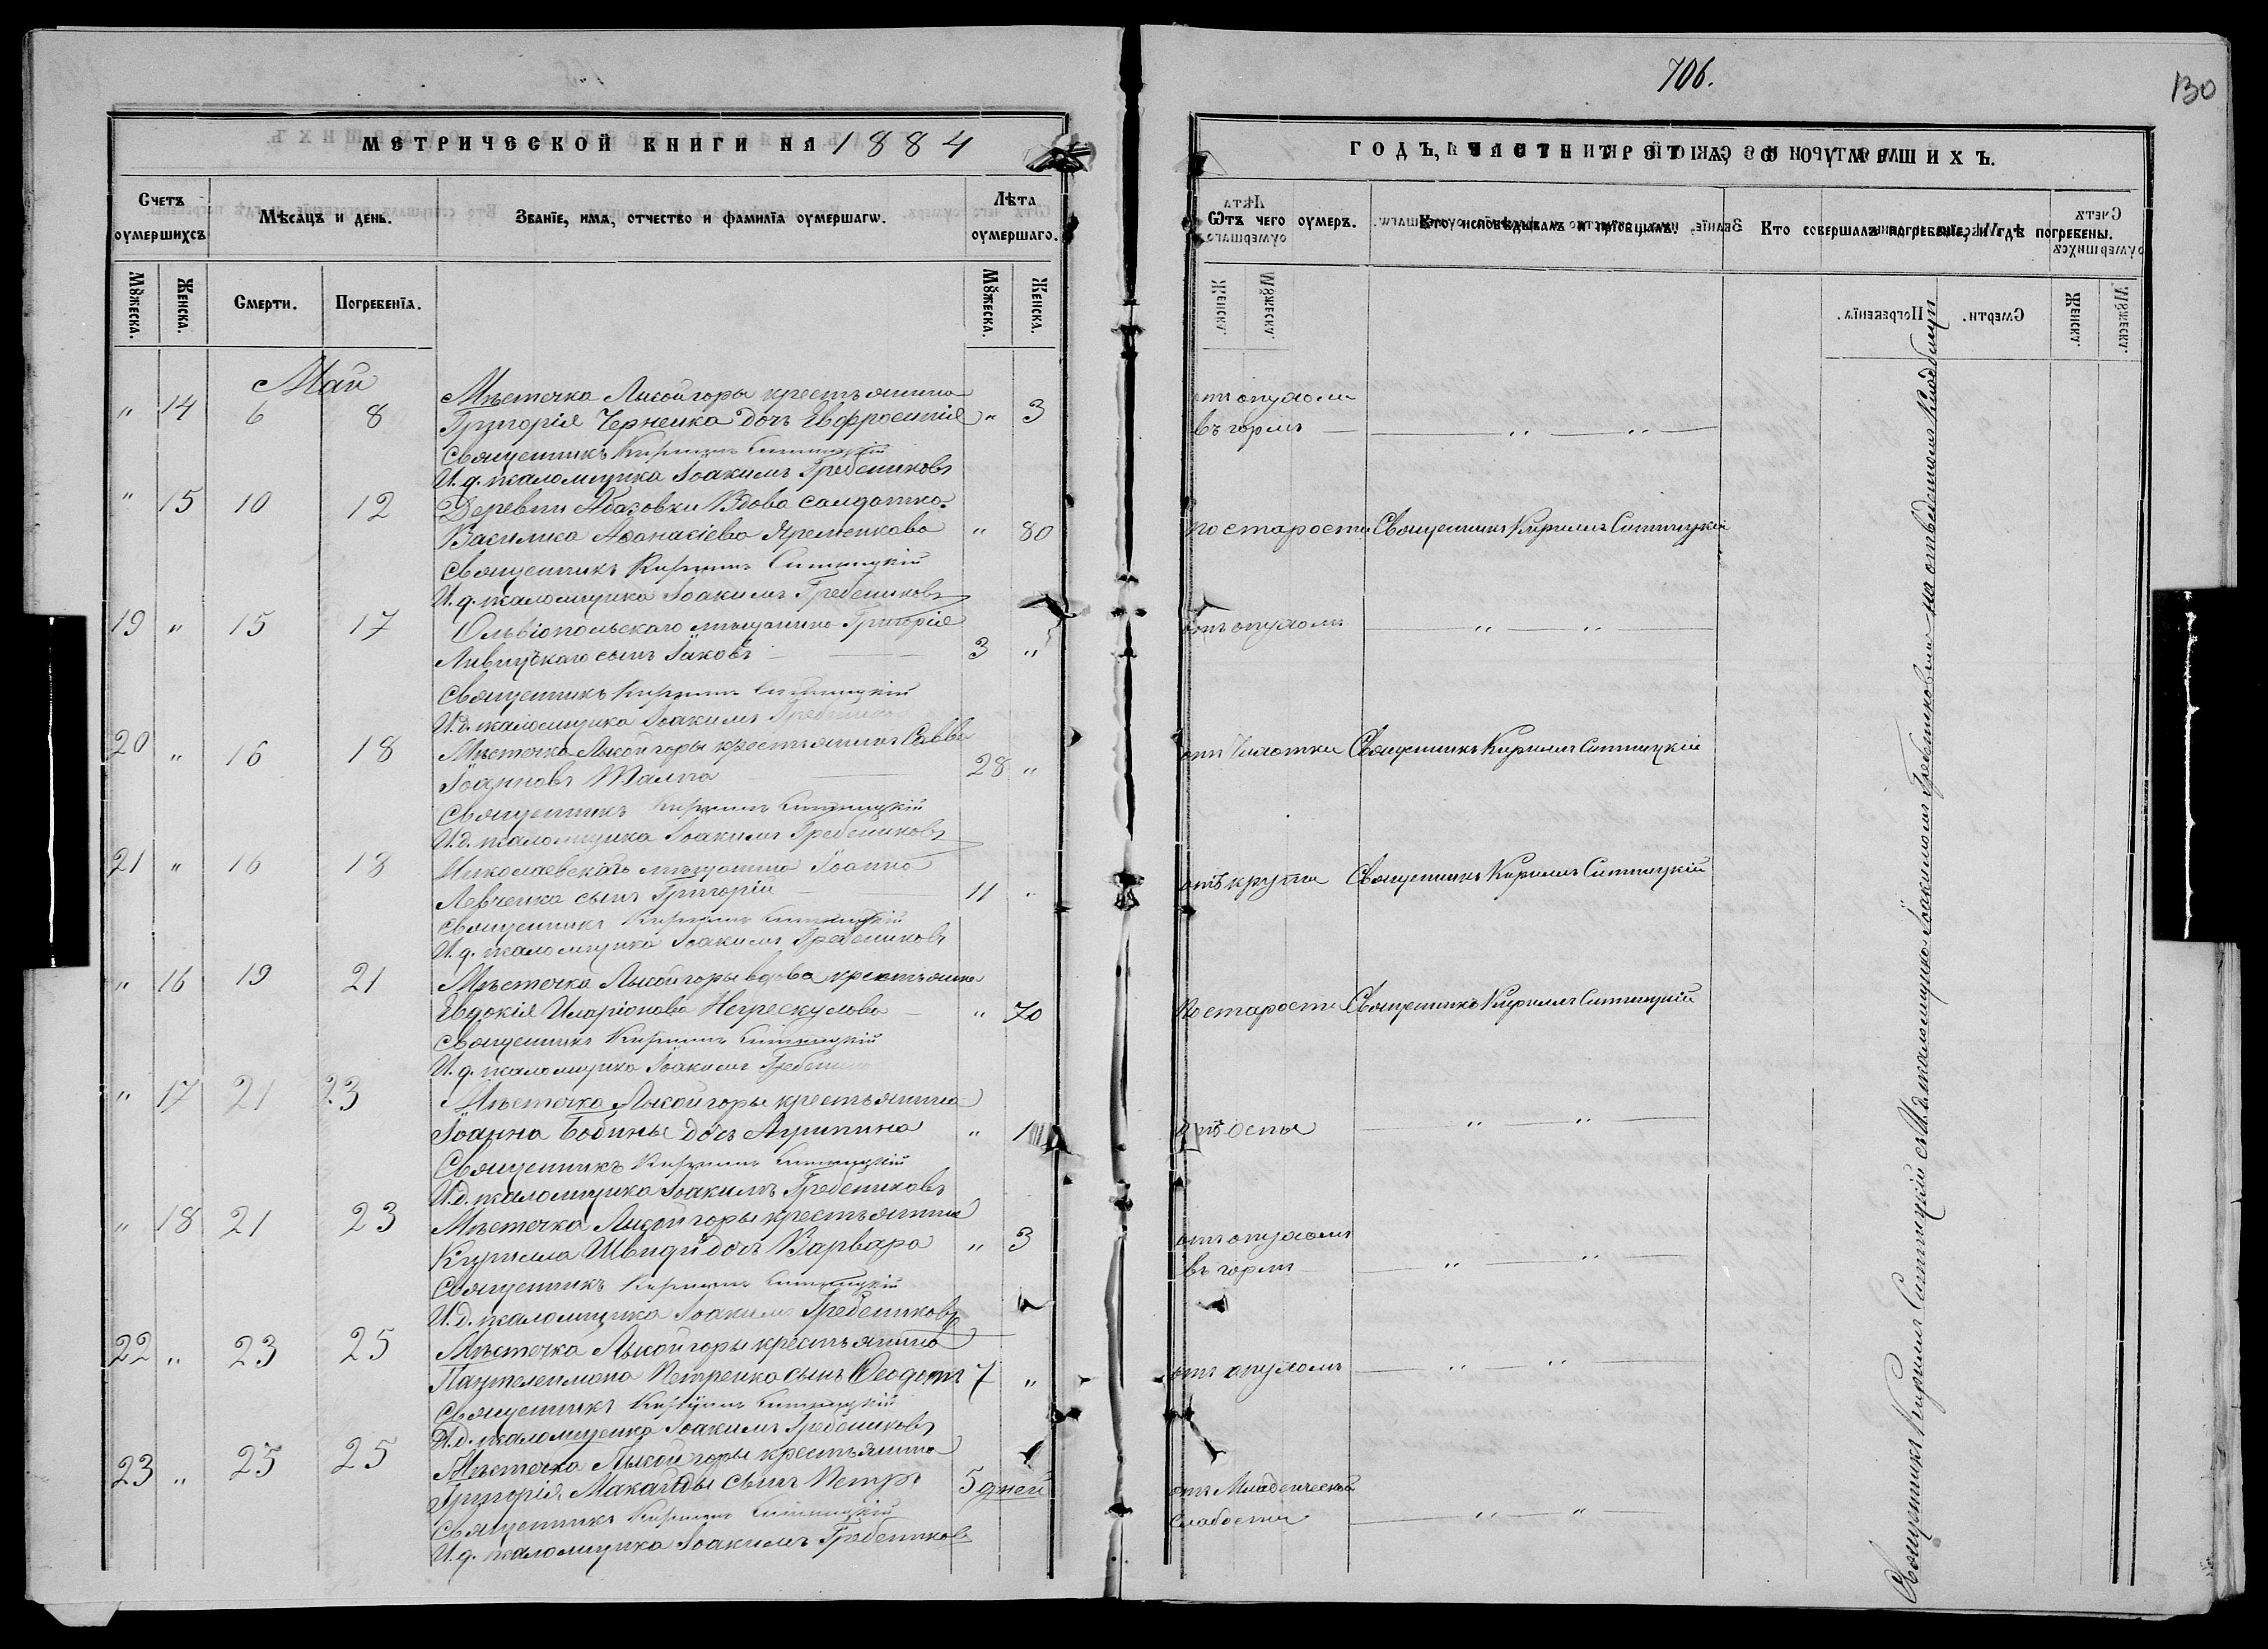 706.
130
МЕТРИЧЕСКОЙ КНИГИ НА 1884
ГОДЪ, ЧАСТЬ ТРЕТІѦ, Ѡ ОУМЕРШИХЪ.
Счетъ оумершихсѧ
Мѣсѧцъ и день.
Званїе, имѧ, отчество и фамилїѧ оумершагѡ.
Лѣта оумершаго.
Ѿтъ чего оумеръ.
Кто исповѣдывалъ и прїобщалъ.
Кто совершалъ погребенїе, и гдѣ погребены.
Мѫжеска.
Женска.
Смерти.
Погребенїѧ.
Мѫжеска.
Женска.
Май
Мѣстечка Лысой горы крестьянина
" 14 6 8 Григорія Черненка дочь Евфросинія " 3 отъ опухоли
въ горлѣ — " — " —
Священникъ Кириллъ Ситницкій
И. д. псаломщика Іоакимъ Гребениковъ
" 15 10 12 Деревни Абазовки Вдова солдатка
Василиса Аѳанасіева Яременкова " 80 по старости Священникъ Кириллъ Ситницкій
Священникъ Кириллъ Ситницкій
И. д. псаломщика Іоакимъ Гребениковъ
19 " 15 17 Ольвіопольскаго мѣщанина Григорія отъ опухоли — " — " —
сынъ Іаковъ 3 "
Священникъ Кириллъ Ситницкій
И. д. псаломщика Іоакимъ
20 " 16 18 Мѣстечка Лысой горы крестьянинъ Савва отъ Чахотки Священникъ Кириллъ Ситницкій
Іоанновъ 28 "
Священникъ Кириллъ Ситницкій
И. д. псаломщика Іоакимъ Гребениковъ
21 " 16 18 Николаевскаго мѣщанина Іоанна
Левченка сынъ Григорій 11 " отъ крупа Священникъ Кириллъ Ситницкій
Священникъ Кириллъ Ситницкій
И. д. псаломщика Іоакимъ Гребениковъ
" 16 19 21 Мѣстечка Лысой горы вдова крестьянка
Евдокія Иларіонова Негрескулова " 70 По старости Священникъ Кириллъ Ситницкій
Священникъ Кириллъ Ситницкій
И. д. псаломщика Іоакимъ
" 17 21 23 Мѣстечка Лысой горы крестьянина
Іоанна Бобины дочь Агрипина " 1 отъ Оспы — " — " —
Священникъ Кириллъ Ситницкій
И. д. псаломщика Іоакимъ Гребениковъ
" 18 21 23 Мѣстечка Лысой горы крестьянина
Кирилла Швиди дочь Варвара " 3 отъ опухоли
въ горлѣ — " — " —
Священникъ Кириллъ Ситницкій
И. д. псаломщика Іоакимъ Гребениковъ
22 " 23 25 Мѣстечка Лысой горы крестьянина
Пантелеимона Петренка сынъ Ѳеодотъ 7 " отъ опухоли — " — " —
Священникъ Кириллъ Ситницкій
И. д. псаломщика Іоакимъ Гребениковъ
23 " 25 25 Мѣстечка Лысой горы крестьянина
Григорія сынъ Петръ 5 дней отъ Младенческой
слабости — " — " —
Священникъ Кириллъ Ситницкій
И. д. псаломщика Іоакимъ Гребениковъ
Священникъ Кириллъ Ситницкій съ И. д. псаломщика Іоакимомъ Гребениковымъ на отведенномъ кладбищѣ